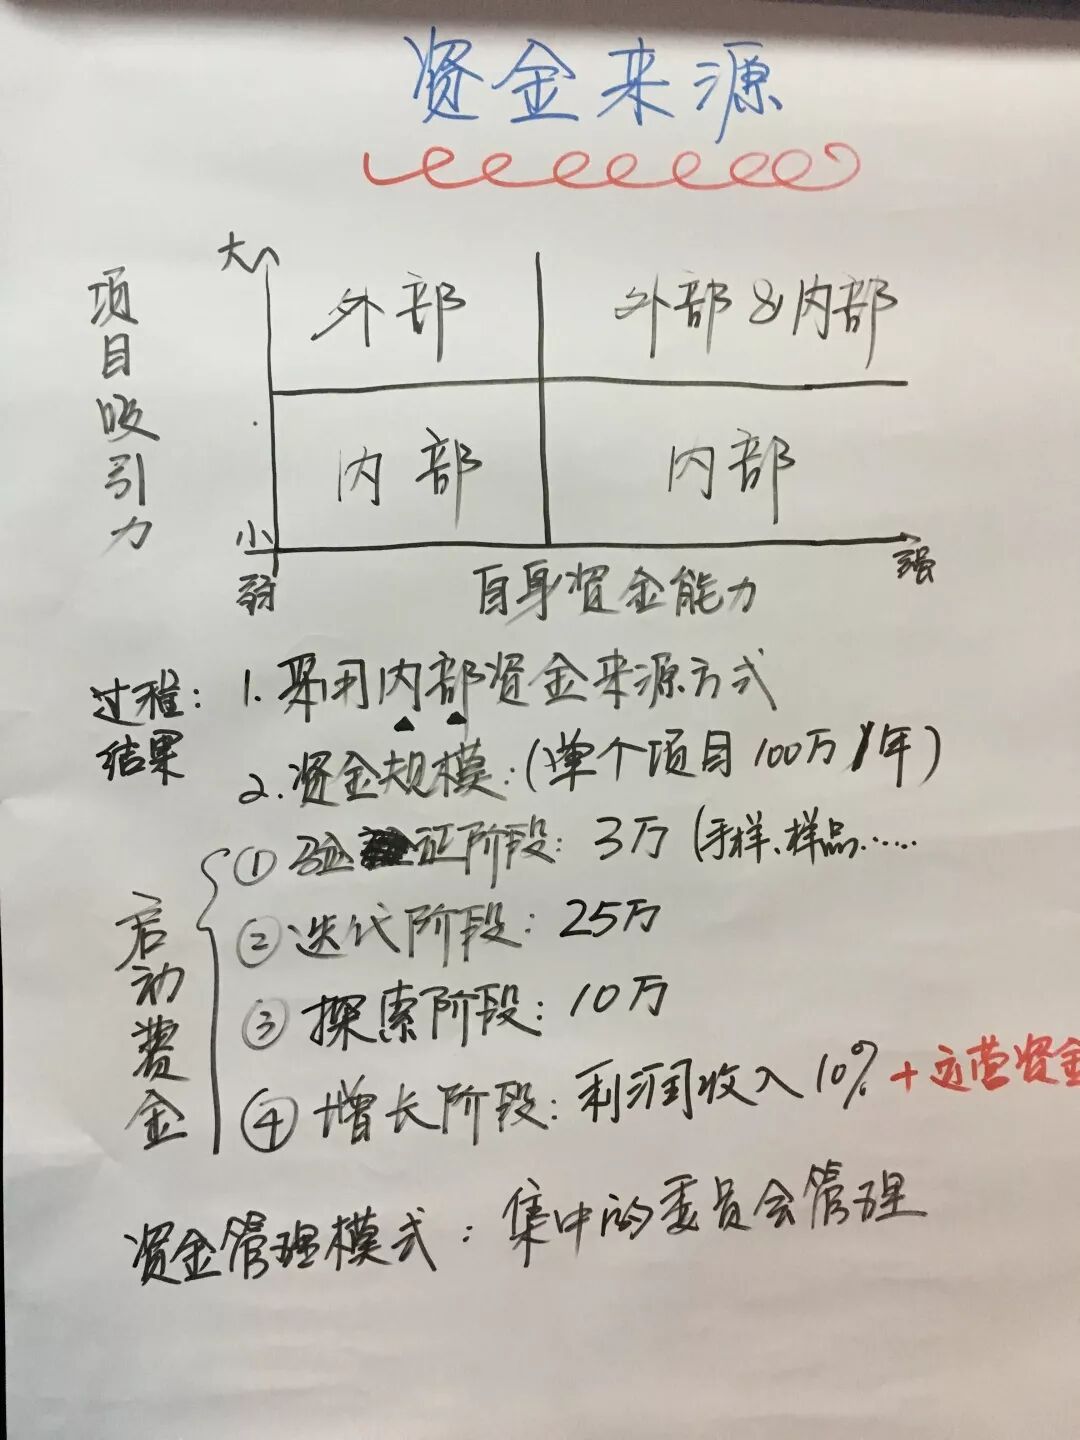 资金来源
大
项目吸引力
外部
外部&内部
内部
内部
小
弱
自身资金能力
强
过程结果:
1. 采用内部资金来源方式
2. 资金规模:(单个项目100万/年)
启动费金
① 验证阶段: 3万 (手样、样品……
② 迭代阶段: 25万
③ 探索阶段: 10万
④ 增长阶段: 利润收入10% + 运营资金
资金管理模式: 集中的委员会管理